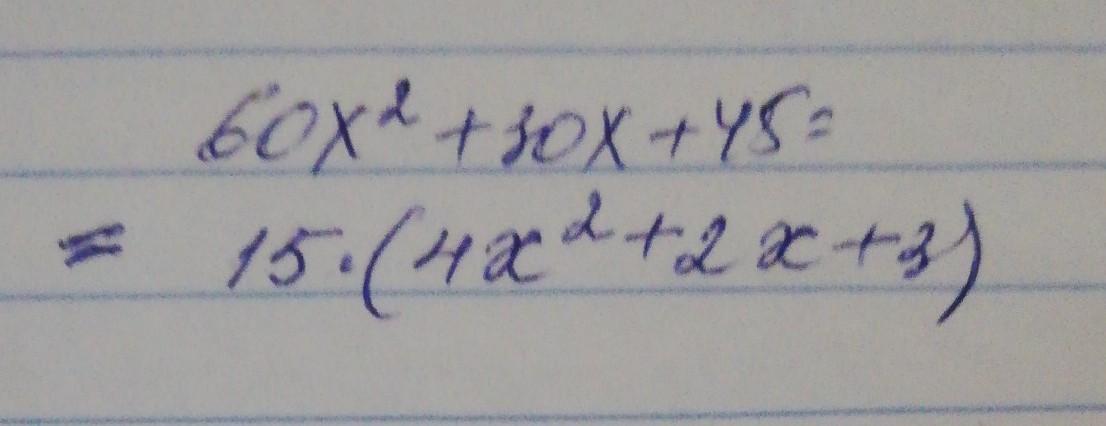 60x² + 30x + 45 =
= 15 · (4x² + 2x + 3)